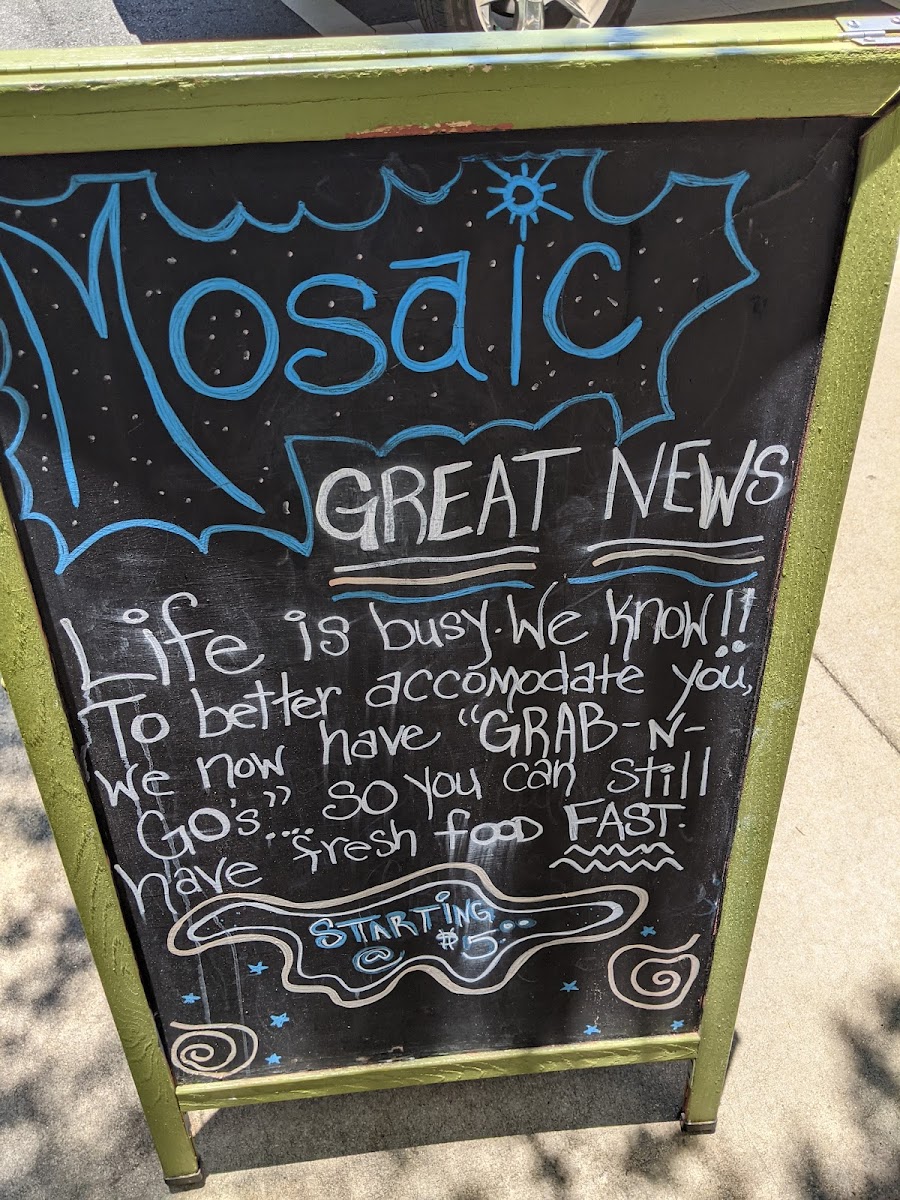 Mosaic
GREAT NEWS
Life is busy. We know!!
To better accomodate you,
we now have "GRAB-N-
GO's".... so you can still
have fresh food FAST.
STARTING
@ $5...